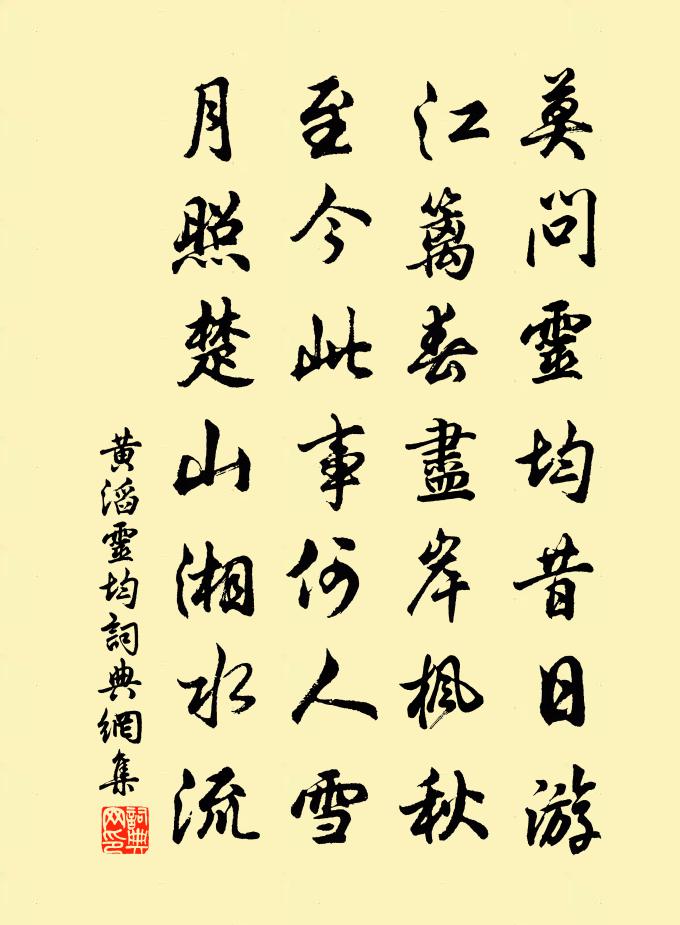 莫問靈均昔日游
江蓠春盡岸楓秋
至今此事何人雪
月照楚山湘水流
黄滔靈均詞典網集
詞典网印